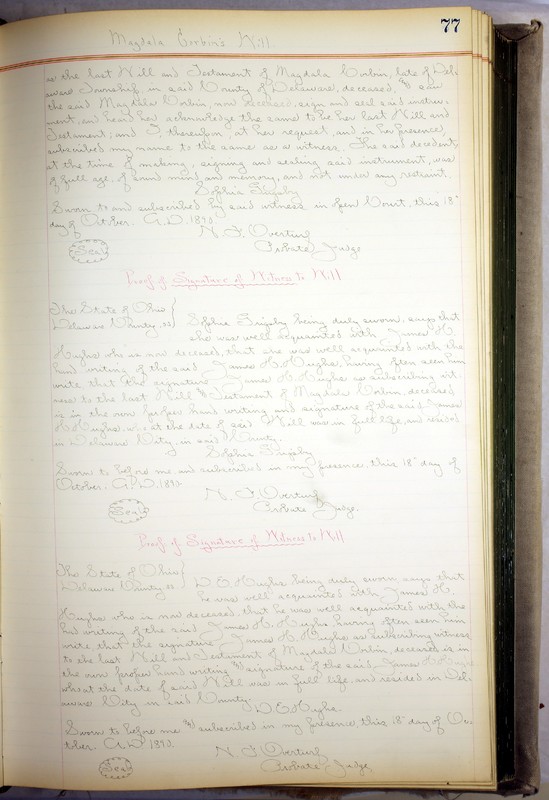 77
Magdala Corbin's Will.
as the last Will and Testament of Magdala Corbin, late of Del-
aware Township, in said County of Delaware, deceased, and saw
the said Magdala Corbin, now deceased, sign and seal said instru-
ment, and heard her acknowledge the same to be her last Will and
Testament; and I, thereupon, at her request, and in her presence,
subscribed my name to the same as a witness. The said decedent,
at the time of making, signing and sealing said instrument, was
of full age, of sound mind and memory, and not under any restraint.
Sophia
Sworn to and subscribed by said witness in open Court, this 18"
day of October. A.D. 189
N. F. Overturf
Probate Judge
Seal
Proof of Signature of Witness to Will
The State of Ohio
Delaware County, ss
Sophia being duly sworn, says that
she was well acquainted with James H.
Hughs who is now deceased, that she was well acquainted with the
hand writing of the said James H. Hughs, having often seen him
write that the signature James H. Hughs as subscribing wit-
ness to the last Will and Testament of Magdala Corbin, deceased
is in the own proper hand writing and signature of the said James
H. Hughs, who at the date of said Will was in full life, and resided
in Delaware City, in said County.
Sophia
Sworn to before me and subscribed in my presence, this 18" day of
October. A.D. 189
N. F. Overturf
Probate Judge.
Seal
Proof of Signature of Witness to Will
The State of Ohio
Delaware County ss
D. E. Hughs being duly sworn says that
he was well acquainted with James H.
Hughs who is now deceased, that he was well acquainted with the
hand writing of the said James H. Hughs, having often seen him
write, that the signature James H. Hughs as subscribing witness
to the last Will and Testament of Magdala Corbin, deceased is in
the own proper hand writing and signature of the said James H. Hughs
who at the date of said Will was in full life, and resided in Del-
aware City in said County.
D. E. Hughs.
Sworn to before me and subscribed in my presence this 18" day of Oc-
tober. A.D. 189
N. F. Overturf
Probate Judge
Seal